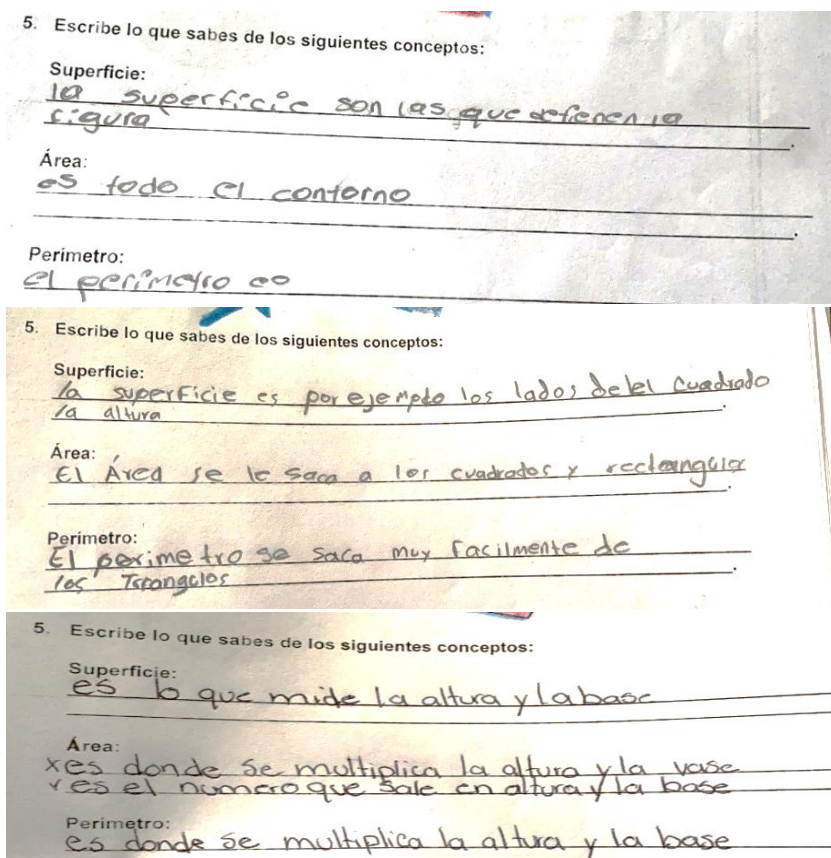 5. Escribe lo que sabes de los siguientes conceptos:
Superficie:
la superficie son las que defienen la
figura
Área:
es todo el contorno
Perímetro:
el perimetro es
5. Escribe lo que sabes de los siguientes conceptos:
Superficie:
la superficie es por ejemplo los lados de el cuadrado
la altura
Área:
El Área se le saca a los cuadrados y rectangulo
Perímetro:
El perimetro se saca muy facilmente de
los Trangulos
5. Escribe lo que sabes de los siguientes conceptos:
Superficie:
es lo que mide la altura y la base
Área:
x es donde se multiplica la altura y la vase
v es el numero que sale en altura y la base
Perímetro:
es donde se multiplica la altura y la base